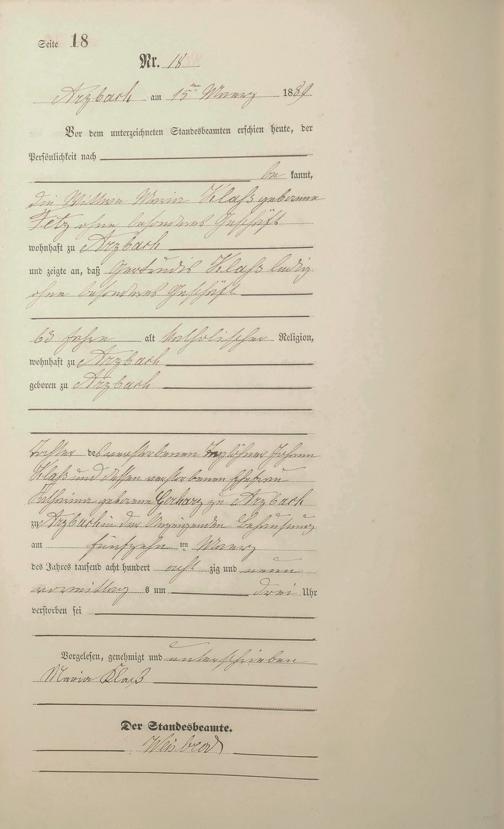 Seite 18
Nr. 18
Arzbach am 15ten Maerz 1889
Vor dem unterzeichneten Standesbeamten erschien heute, der
Persönlichkeit nach
be kannt,
die Wittwe Maria Klaß geborene
Fetz ohne besonderes Geschäft
wohnhaft zu Arzbach
und zeigte an, daß Gertrudis Klaß ledig
ohne besonderes Geschäft
63 Jahre alt katholischer Religion,
wohnhaft zu Arzbach
geboren zu Arzbach
Tochter des verstorbenen Taglöhner Johann
Klaß und dessen verstorbenen Ehefrau
geborene zu Arzbach
zu Arzbach in der Behausung
am fünfzehn ten Maerz
des Jahres tausend acht hundert acht zig und neun
vormittag s um drei Uhr
verstorben sei
Vorgelesen, genehmigt und unterschrieben
Maria Klaß
Der Standesbeamte.
Weisbrod